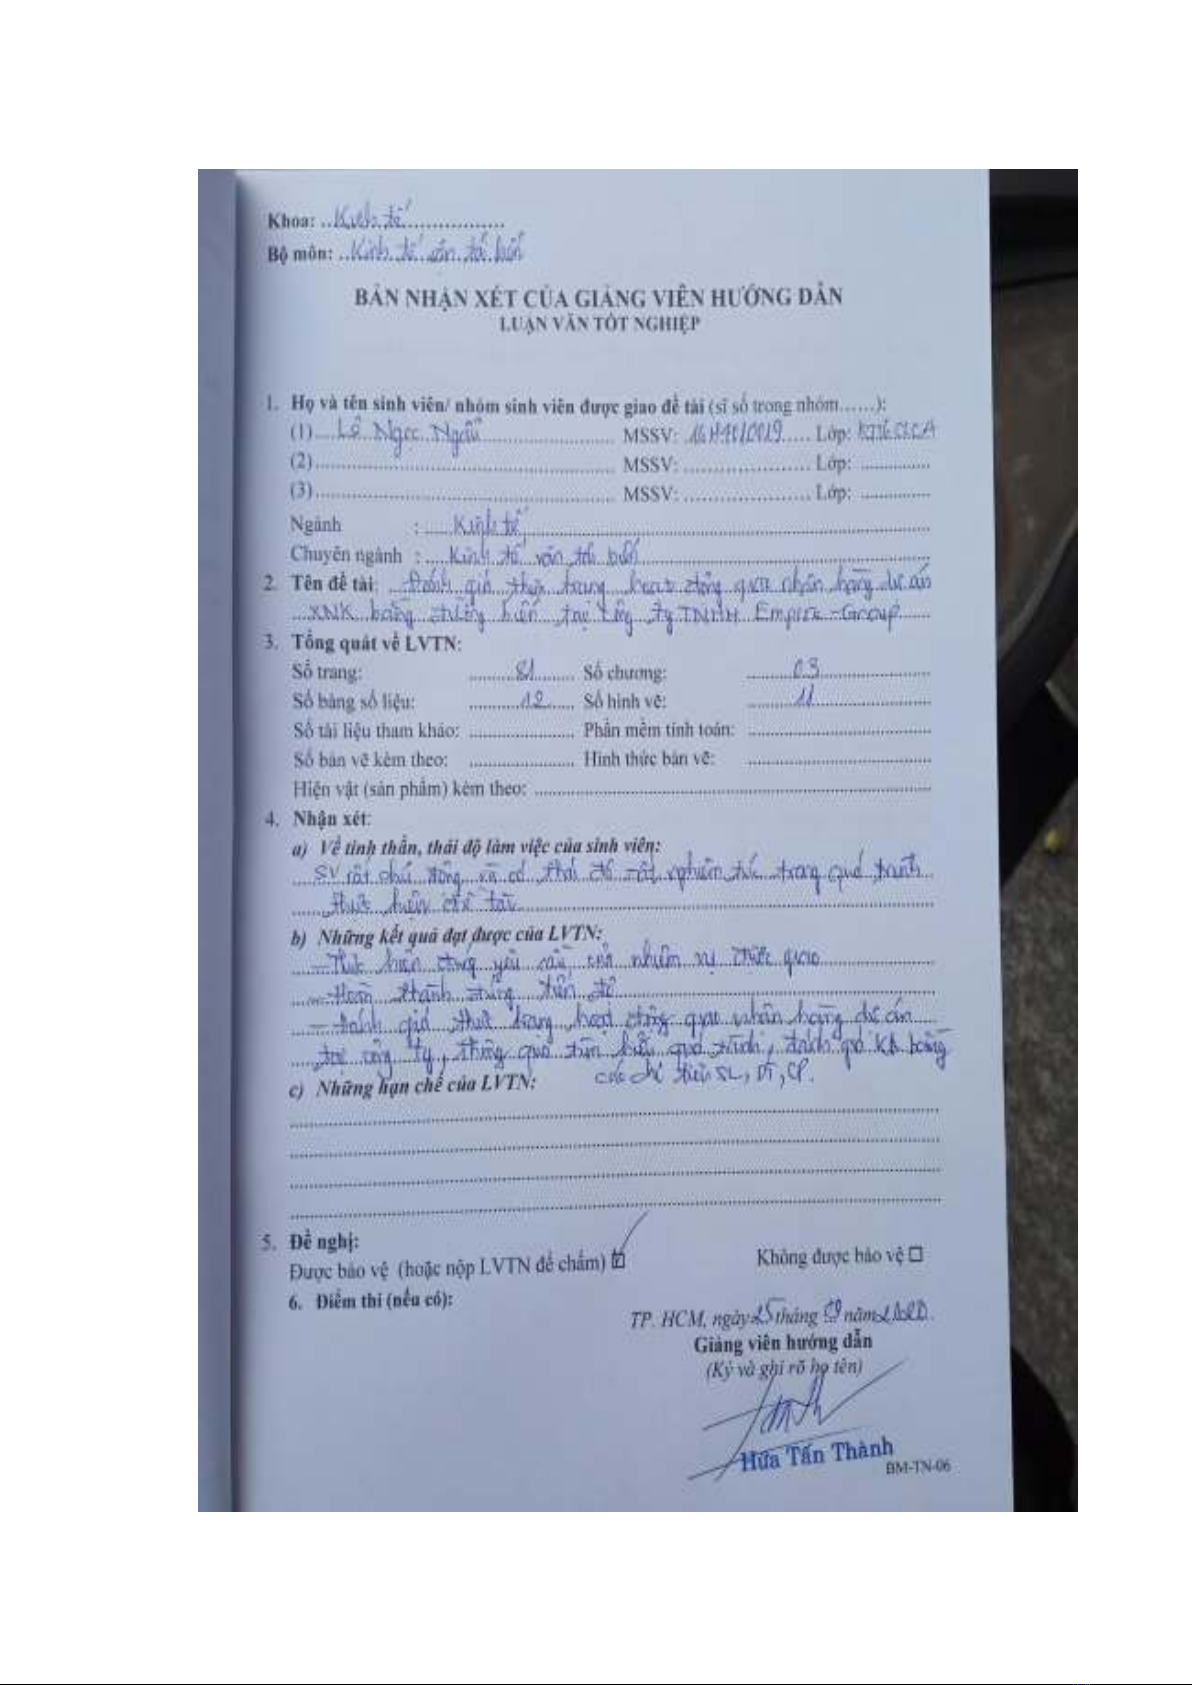 Khoa: ..Kinh tế................
Bộ môn: ..Kinh tế vận tải biển
BẢN NHẬN XÉT CỦA GIẢNG VIÊN HƯỚNG DẪN
LUẬN VĂN TỐT NGHIỆP
1. Họ và tên sinh viên/ nhóm sinh viên được giao đề tài (sĩ số trong nhóm......):
(1) Lê Ngọc Ngân MSSV: Lớp:
(2) MSSV: Lớp:
(3) MSSV: Lớp:
Ngành : Kinh tế
Chuyên ngành : Kinh tế vận tải biển
2. Tên đề tài: Đánh giá thực trạng hoạt động giao nhận hàng dự án
XNK bằng đường biển tại Công ty TNHH Empire Group
3. Tổng quát về LVTN:
Số trang: 81 Số chương: 03
Số bảng số liệu: 12 Số hình vẽ: 11
Số tài liệu tham khảo: Phần mềm tính toán:
Số bản vẽ kèm theo: Hình thức bản vẽ:
Hiện vật (sản phẩm) kèm theo:
4. Nhận xét:
a) Về tinh thần, thái độ làm việc của sinh viên:
SV rất chủ động và có thái độ rất nghiêm túc trong quá trình
thực hiện đề tài
b) Những kết quả đạt được của LVTN:
- Thực hiện đúng yêu cầu của nhiệm vụ được giao
- Hoàn thành đúng tiến độ
- Đánh giá thực trạng hoạt động giao nhận hàng dự án
tại công ty, thông qua tìm hiểu quá trình, đánh giá KQ bằng
các chỉ tiêu SL, DT, CP.
c) Những hạn chế của LVTN:
5. Đề nghị:
Được bảo vệ (hoặc nộp LVTN để chấm) ☑ Không được bảo vệ ☐
6. Điểm thi (nếu có):
TP. HCM, ngày 25 tháng 09 năm 2020.
Giảng viên hướng dẫn
(Ký và ghi rõ họ tên)
Hứa Tấn Thành
BM-TN-06